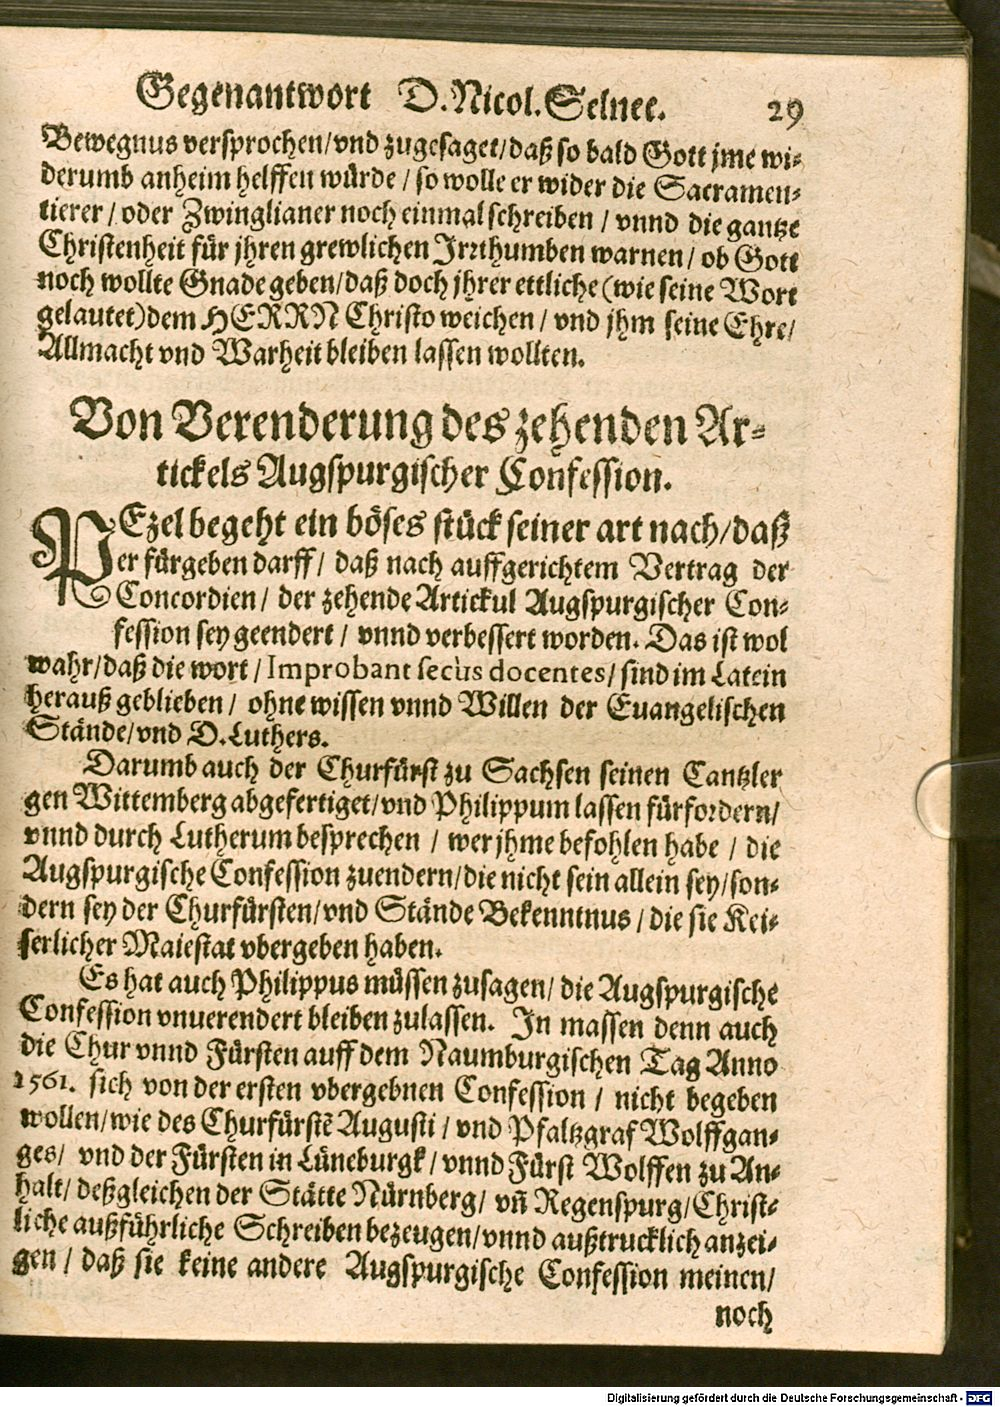 Gegenantwort D. Nicol. Selnec. 29
Bewegnus versprochen/vnd zugesaget/daß so bald Gott jme wi-
derumb anheim helffen würde / so wolle er wider die Sacramen-
tierer / oder Zwinglianer noch einmal schreiben / vnnd die gantze
Christenheit für jhren grewlichen Irrthumben warnen / ob Gott
noch wollte Gnade geben/daß doch jhrer ettliche (wie seine Wort
gelautet) dem HERRN Christo weichen / vnd jhm seine Ehre/
Allmacht vnd Warheit bleiben lassen wollten.
Von Verenderung des zehenden Ar-
tickels Augspurgischer Confession.
PEzel begeht ein böses stück seiner art nach/daß
er fürgeben darff / daß nach auffgerichtem Vertrag der
Concordien / der zehende Artickul Augspurgischer Con-
fession sey geendert / vnnd verbessert worden. Das ist wol
wahr/daß die wort / Improbant secùs docentes/ sind im Latein
herauß geblieben / ohne wissen vnnd Willen der Euangelischen
Stände/vnd D. Luthers.
Darumb auch der Churfürst zu Sachsen seinen Cantzler
gen Wittemberg abgefertiget/vnd Philippum lassen fürfordern/
vnnd durch Lutherum besprechen / wer jhme befohlen habe / die
Augspurgische Confession zuendern/die nicht sein allein sey/son-
dern sey der Churfürsten/vnd Stände Bekenntnus / die sie Kei-
serlicher Maiestat vbergeben haben.
Es hat auch Philippus müssen zusagen/ die Augspurgische
Confession vnuerendert bleiben zulassen. In massen denn auch
die Chur vnnd Fürsten auff dem Naumburgischen Tag Anno
1561. sich von der ersten vbergebnen Confession / nicht begeben
wollen/wie des Churfürstē Augusti / vnd Pfaltzgraf Wolffgan-
ges/ vnd der Fürsten in Lüneburgk / vnnd Fürst Wolffen zu An-
halt/ deßgleichen der Stätte Nürnberg/ vñ Regenspurg/Christ-
liche außführliche Schreiben bezeugen/vnnd außtrucklich anzei-
gen / daß sie keine andere Augspurgische Confession meinen/
noch
Digitalisierung gefördert durch die Deutsche Forschungsgemeinschaft - DFG